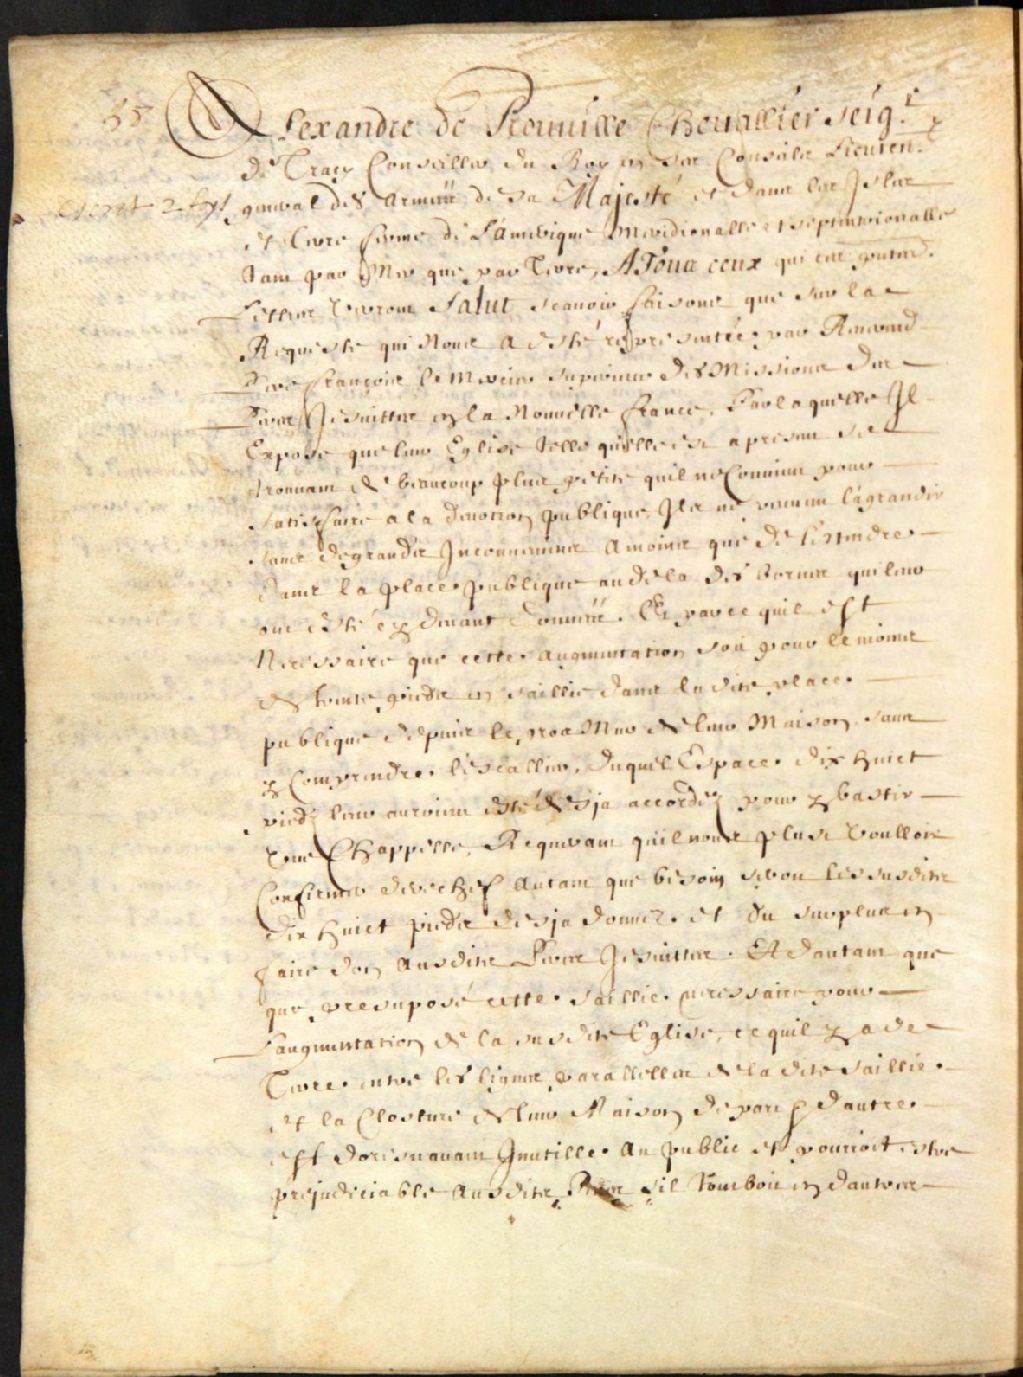 35
Alexandre de Prouuille Cheuallier Seigr
de Tracy Conseiller du Roy en ses Conseils Lieuten.t
escrit 2 foys
general des armées de sa Majesté et dans les Isles
et terre ferme de L'amerique meridionalle et septentrionalle
tant par Mer que par terre, A Tous ceux qui ces pntes
Lettres verront Salut scauoir faisons que sur la
Requeste qui Nous a esté representée par Reuerend
Pere françois le Mercier superieur des Missions des
Peres Jesuittes en la Nouuelle france, Par laquelle Il
Expose que leur Eglise telle quelle est a present se
trouuant de beaucoup plus petite quil ne Conuient pour
satisfaire a la deuotion publique, Ils ne peuuent lagrandir
sans de grands Inconueniens a moins que de sestendre
dans la place publique au dela des bornes qui leur
ont esté cy deuant données. Et parce quil est
Necessaire que cette augmentation soit pour le moins
de trente pieds en saillie dans la dite place
publique depuis le gros Mur de leur Maison, sans
y Comprendre lescallier, duquel Espace dix huict
pieds leur auroient esté desja accordez pour y bastir
vne Chappelle, Requerant quil nous plust voulloir
Confirmer derechef autant que besoin seroit les susdits
dix huict pieds desja donnez et du surplus en
faire don ausdits Peres Jesuittes. Et dautant que
que presuposé cette saillie necessaire pour
Laugmentation de la susdite Eglise, ce quil y a de
terre entre les lignes paralelles de la dite saillie
et la Closture de leur Maison de part & dautre
est doresnauant Inutille au public et pourroit estre
prejudiciable ausdits Peres sil tomboit en dautres